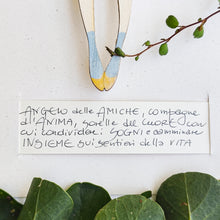 ANGELO delle AMICHE, compagne
d'ANIMA, sorelle del CUORE con
cui condividere SOGNI e camminare
INSIEME sui sentieri della VITA